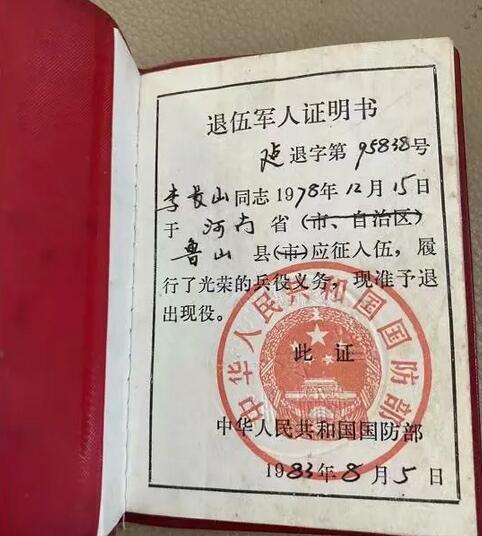 退伍军人证明书
退字第95838号
李长山同志1978年12月15日
于 河南 省(市、自治区)
鲁山 县(市)应征入伍，履
行了光荣的兵役义务，现准予退
出现役。
此 证
中华人民共和国国防部
中华人民共和国国防部
1983年8月5日